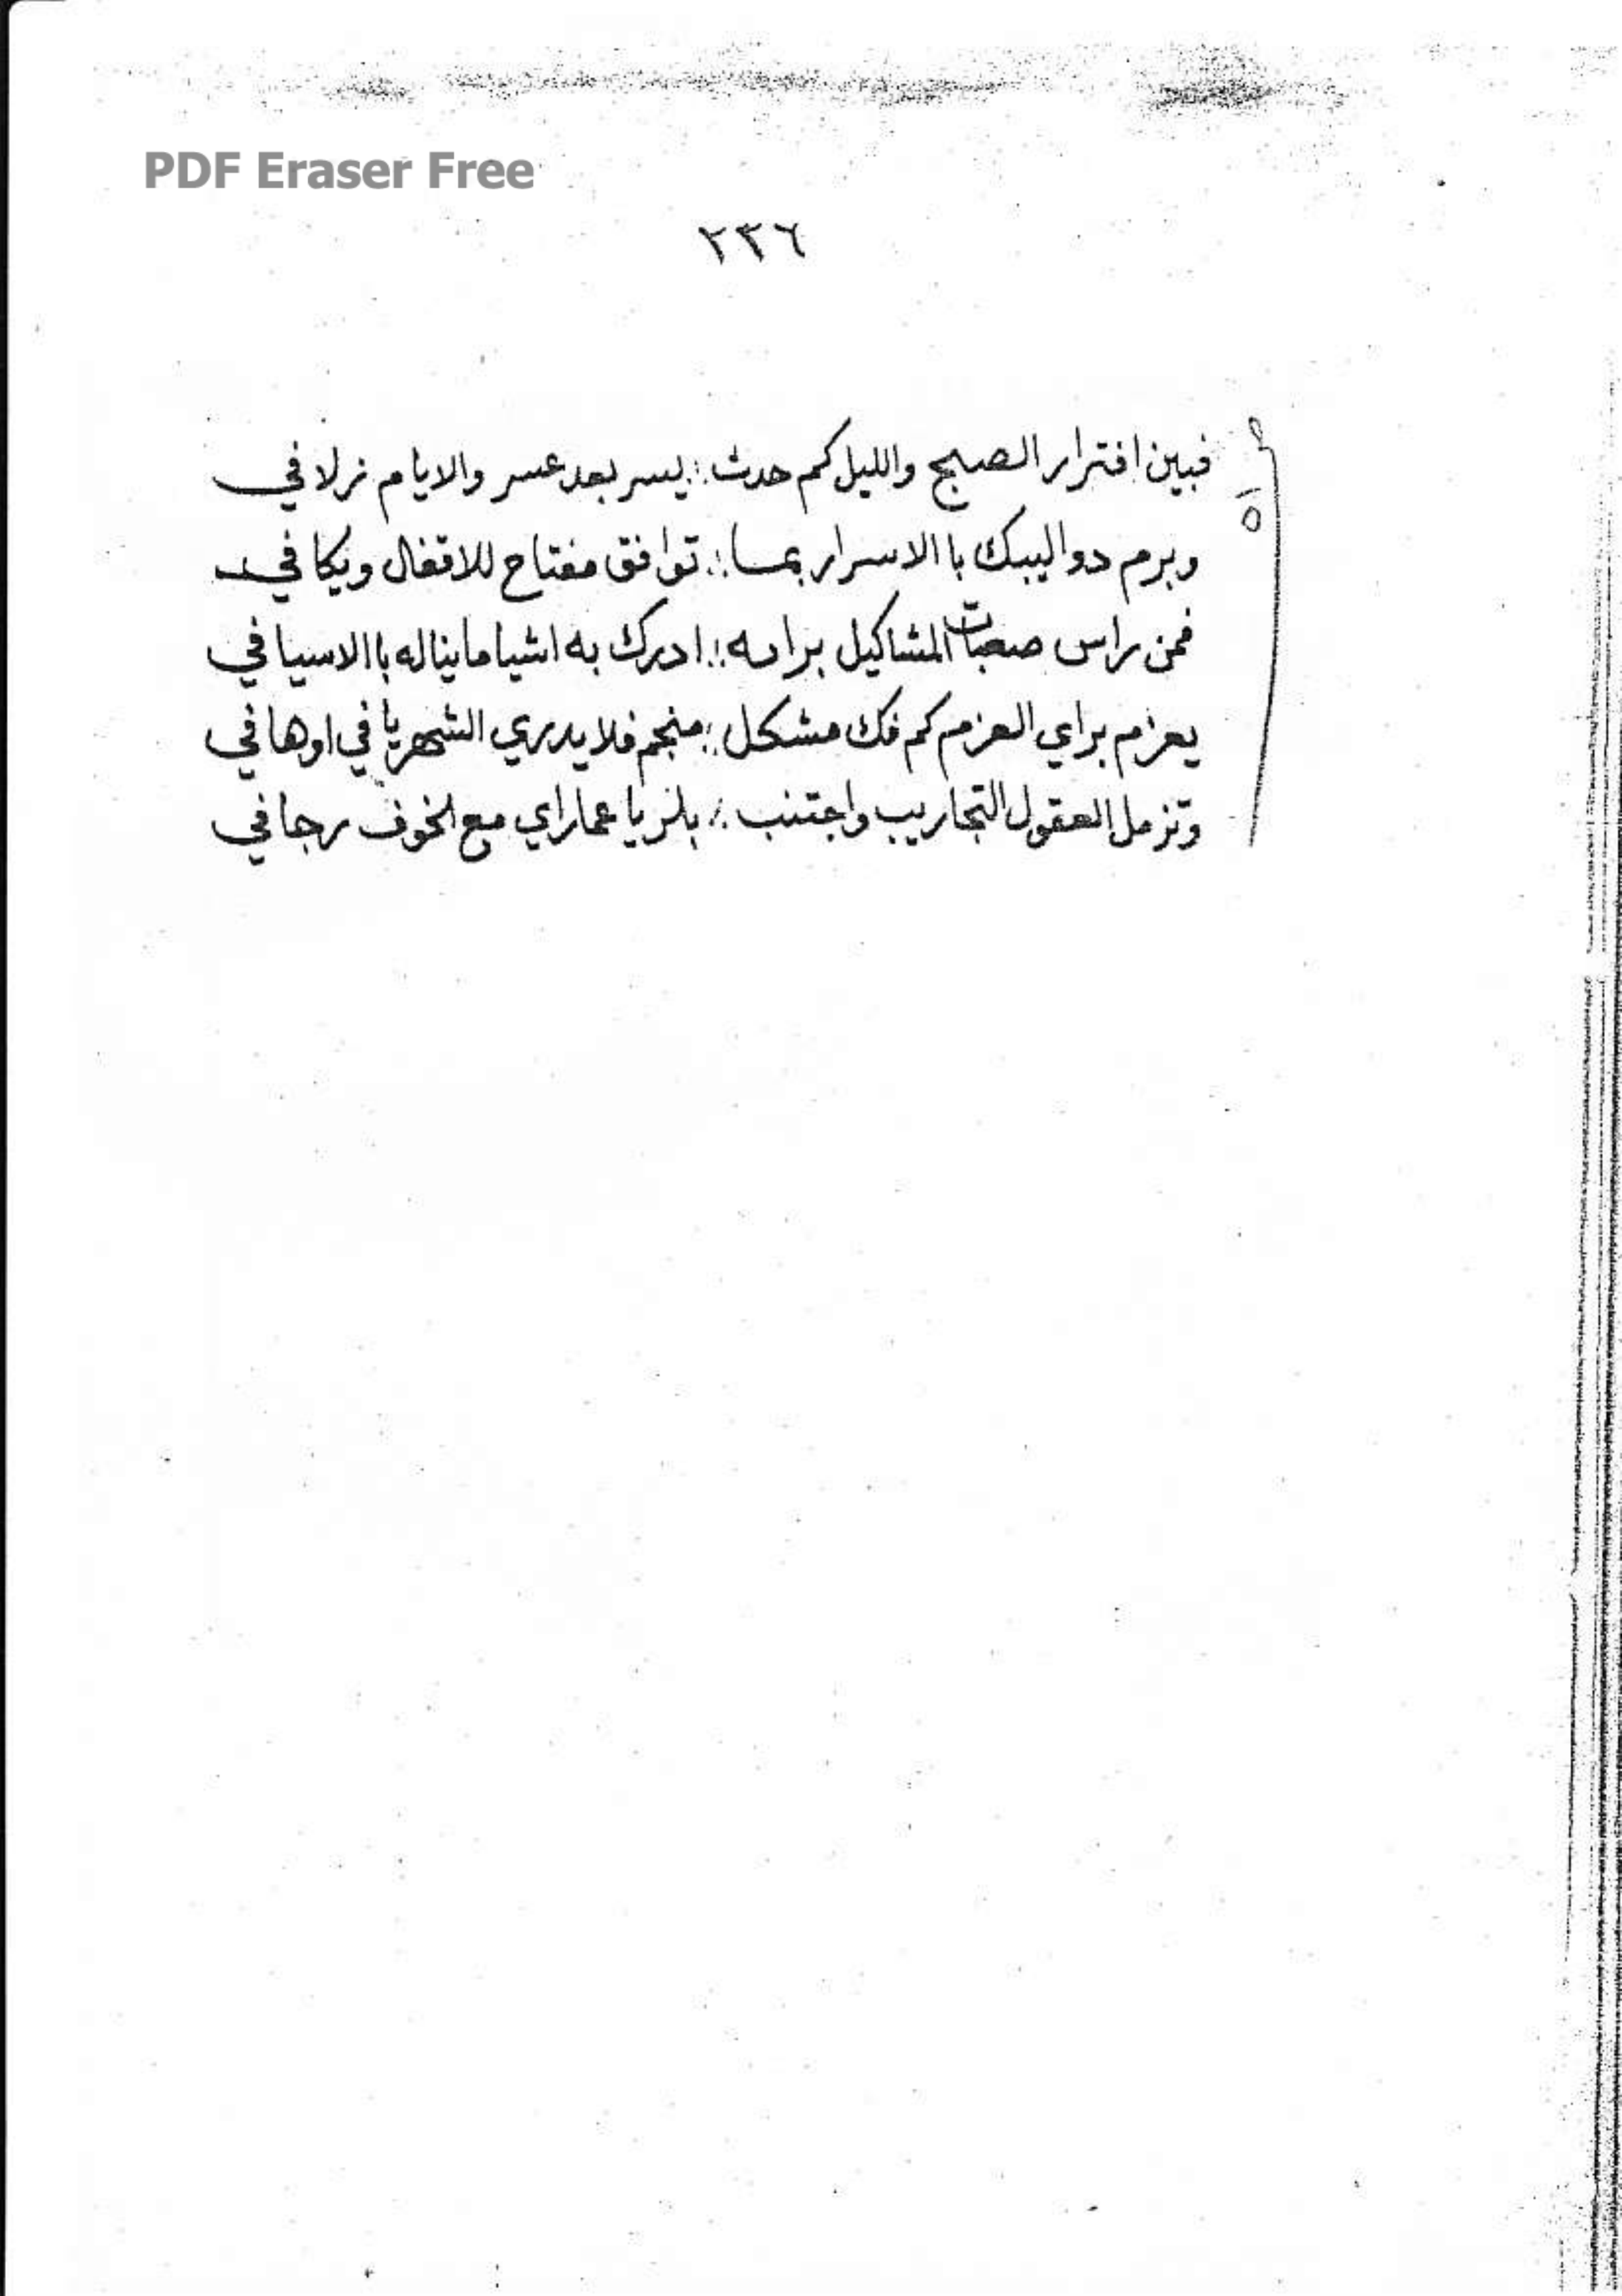 PDF Eraser Free
٢٣٦
فبين افترار الصبح والليل كم حدث ؛ يسر بعد عسر والايام نزلا في
٥
وبرم دواليبك با الاسرار بمسا ؛ توافق مفتاح للاقفال ويكا في
فمن راس صعبات المشاكيل برايه ؛ ادرك به اشيا ما يناله با الاسيا في
يعزم براي العزم كم فك مشكل ؛ منجم فلا يدري الشهريا في اوها في
وتزمل العقول التجاريب واجتنب ؛ يا عما راي مع الخوف رجا في